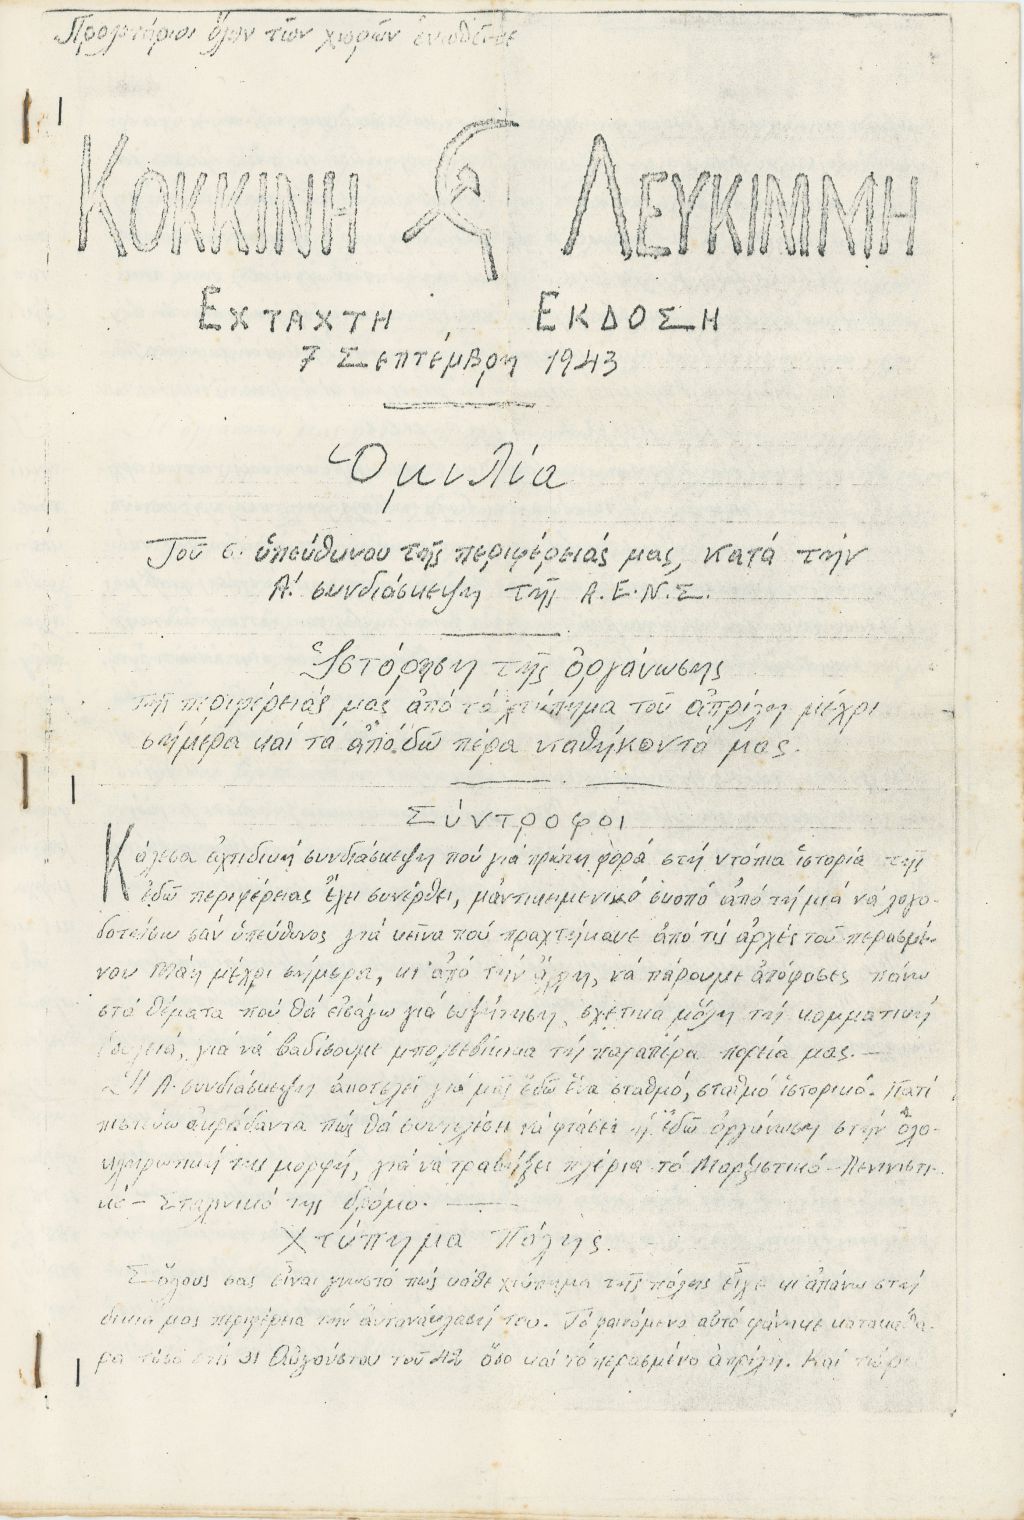 Προλετάριοι ὅλων τῶν χωρῶν ἑνωθεῖτε
ΚΟΚΚΙΝΗ ΛΕΥΚΙΜΜΗ
ΕΧΤΑΧΤΗ ΕΚΔΟΣΗ
7 Σεπτέμβρη 1943
Ὁμιλία
Τοῦ σ. ὑπεύθυνου τῆς περιφέρειάς μας, κατά τήν
Α! συνδιάσκεψη τῆς Α.Ε.Ν.Σ.
Ἱστόρηση τῆς ὀργάνωσης
τῆς περιφέρειάς μας ἀπό τό χτύπημα τοῦ ἀπρίλη μέχρι
σήμερα καί τά ἀπό δῶ πέρα καθήκοντά μας.
Σύντροφοι
Κάλεσα συνδιάσκεψη πού γιά πρώτη φορά στή ντόπια ἱστορία τῆς
ἐδῶ περιφέρειας ἔχει συνέρθει, μ᾿ ἀντικειμενικό σκοπό ἀπό τή μιά νά λογο-
δοτείσω σάν ὑπεύθυνος γιά κεῖνα πού πραχτήκανε ἀπό τίς ἀρχές τοῦ περασμέ-
νου Μάη μέχρι σήμερα, κι᾿ ἀπό τήν ἄλλη, νά πάρουμε ἀπόφασες πάνω
στά θέματα πού θά εἰσάγω γιά συζήτηση, σχετικά μ᾿ ὅλη τή κομματική
δουλειά, γιά νά βαδίσουμε μπολσεβίκικα τή παραπέρα πορεία μας.—
Ἡ Α. συνδιάσκεψη ἀποτελεῖ γιά μᾶς ἐδῶ ἕνα σταθμό, σταθμό ἱστορικό. Γιατί
πιστεύω ἀκράδαντα πώς θά συντελέσει νά φτάσει ἡ ἐδῶ ὀργάνωση στήν ὁλο-
κληρωτική της μορφή, γιά νά τραβήξει πλέρια τό Μαρξιστικό-Λενινιστι-
κό-Σταλινικό της δρόμο.—
Χτύπημα Πόλης.
Σ᾿ ὅλους σας εἶναι γνωστό πώς κάθε χτύπημα τῆς πόλης εἶχε κι᾿ ἀπάνω στή
δικιά μας περιφέρεια τήν ἀντανάκλασή του. Τό φαινόμενο αὐτό φάνηκε κατακάθα-
ρα τόσο στίς 31 Αὐγούστου τοῦ 42 ὅσο καί τό περασμένο ἀπρίλη. Καί τώρα